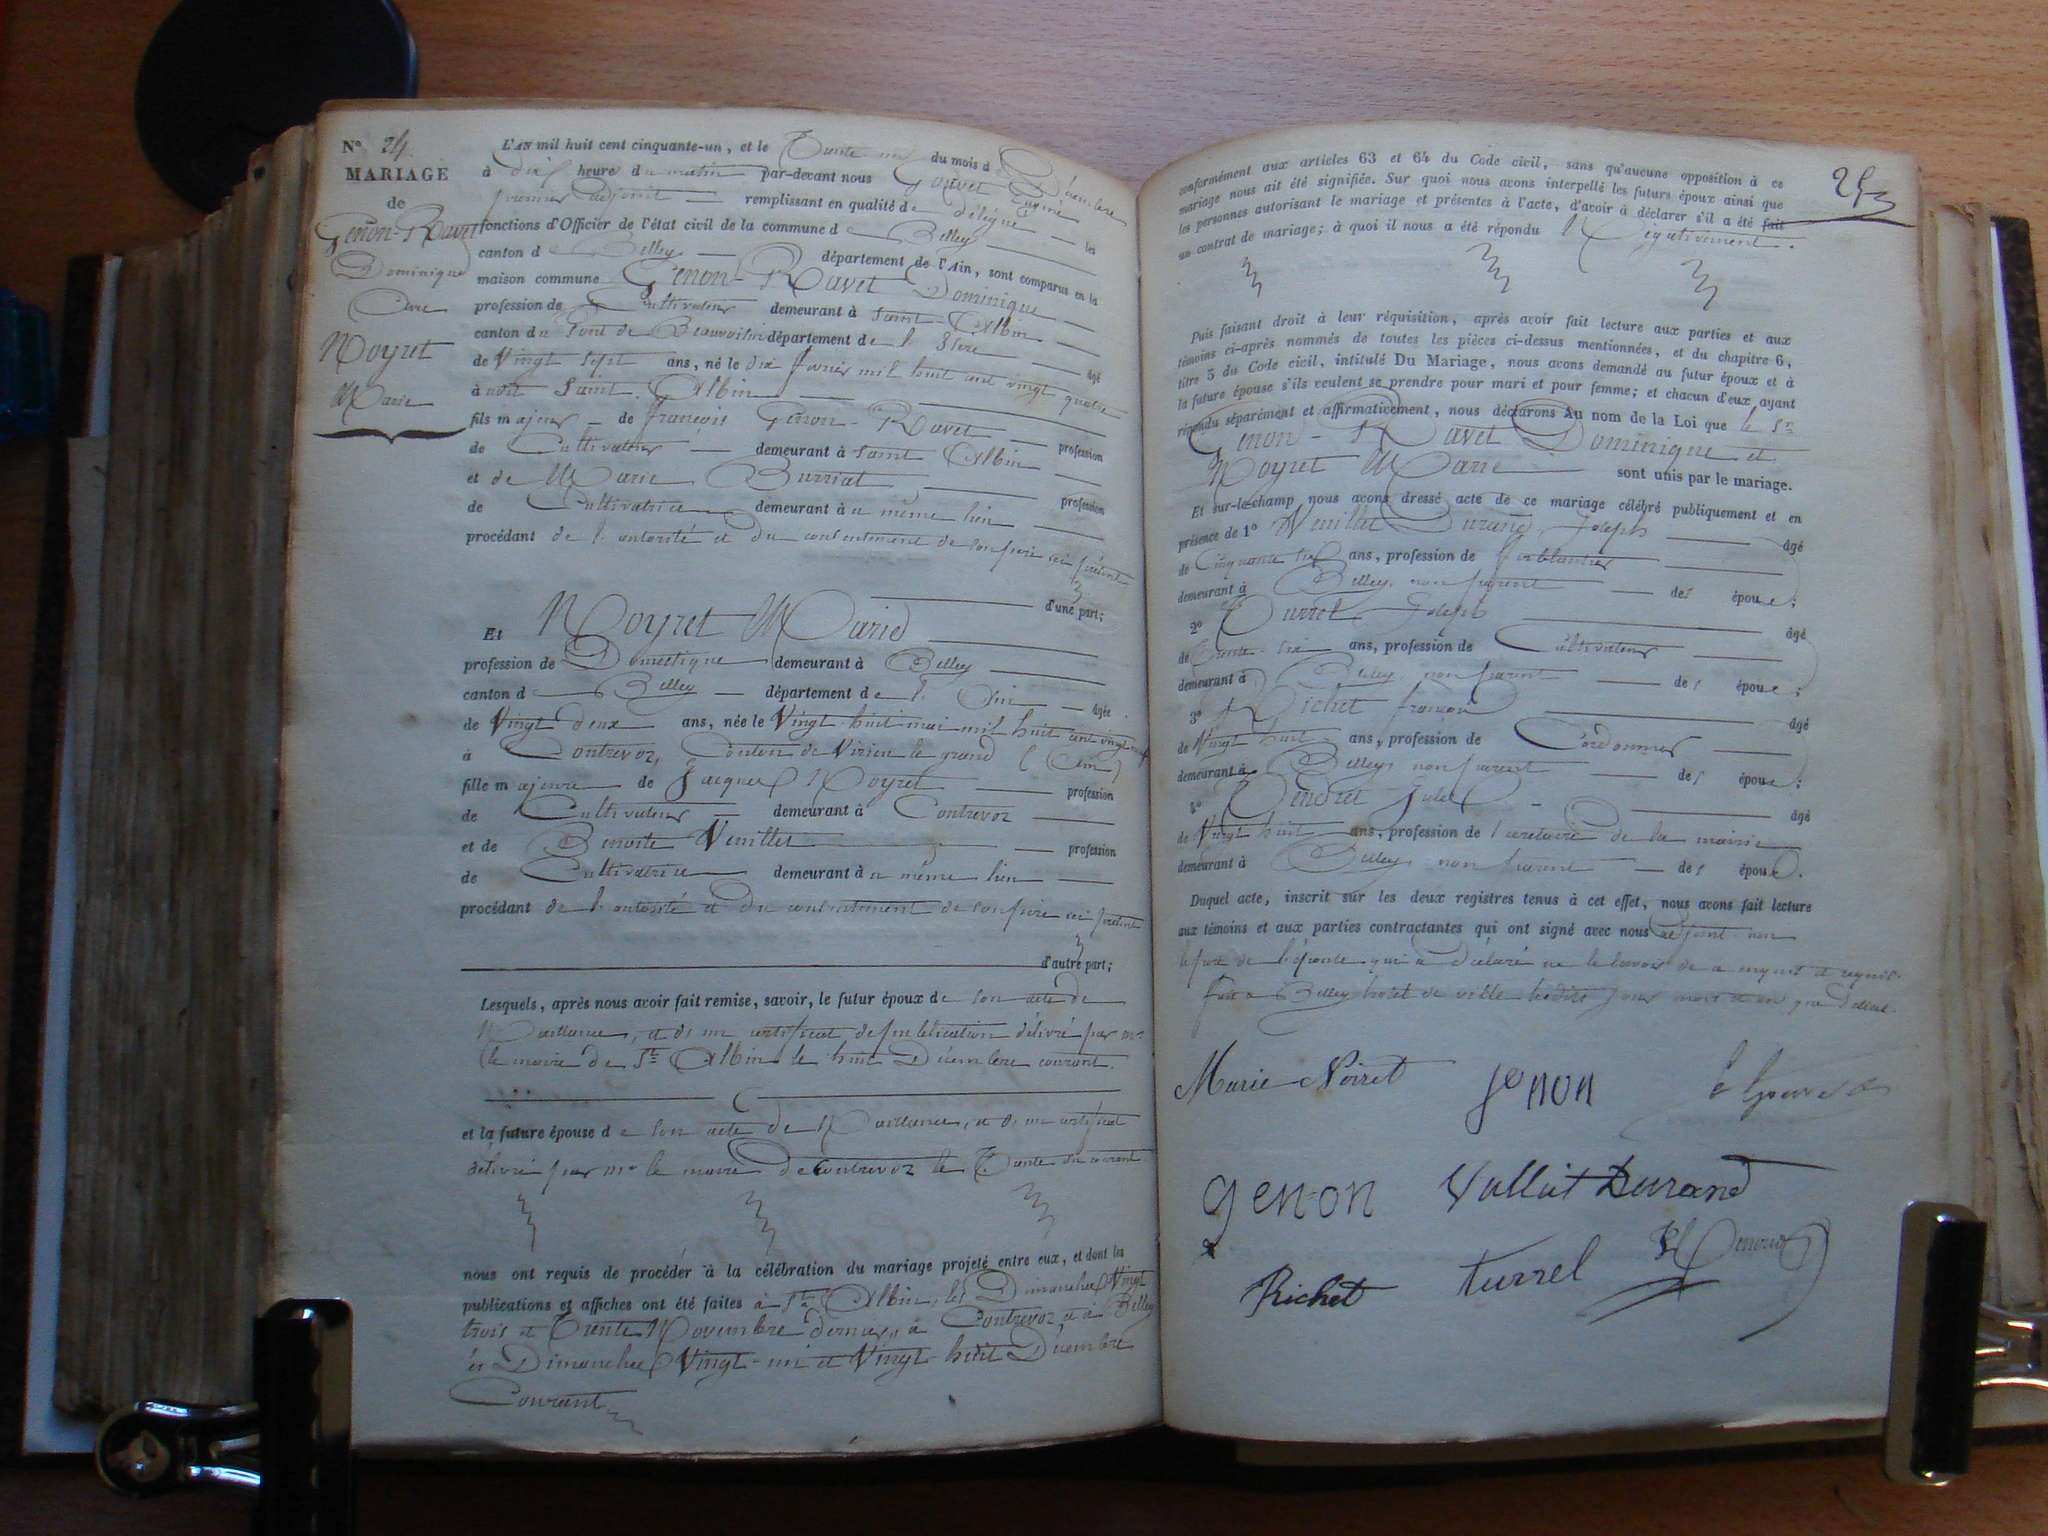 N° 24
MARIAGE
de
Genon-Ravet
Dominique
avec
Noyret
Marie
L'AN mil huit cent cinquante-un, et le Trente-un du mois d Décembre
à dix heure du matin par-devant nous
premier adjoint remplissant en qualité de délégué les
fonctions d'Officier de l'état civil de la commune de Belley
canton de Belley département de l'Ain, sont comparus en la
maison commune Genon-Ravet Dominique
profession de Cultivateur demeurant à Saint-Albin
canton du Pont de Beauvoisin département de l'Isère âgé
de Vingt sept ans, né le dix février mil huit cent vingt quatre
à Saint Albin
fils majeur de françois Genon-Ravet profession
de Cultivateur demeurant à Saint Albin
et de Marie Burriat profession
de Cultivatrice demeurant au même lieu
procédant de l'autorité et du consentement de son père ici présent
d'une part;
Et Noyret Marie
profession de Domestique demeurant à Belley
canton de Belley département de l'Ain âgée
de Vingt deux ans, née le Vingt-huit mai mil huit cent vingt neuf
à Contrevoz, Canton de Virieu le grand (Ain)
fille majeure de Jacques Noyret profession
de Cultivateur demeurant à Contrevoz
et de Benoite Vuillet profession
de Cultivatrice demeurant au même lieu
procédant de l'autorité et du consentement de son père ici présent
d'autre part;
Lesquels, après nous avoir fait remise, savoir, le futur époux de son acte de
Naissance, et d'un certificat de publication délivré par mr
le maire de St Albin le huit Décembre courant.
et la future épouse de son acte de Naissance, et d'un certificat
délivré par mr le maire de Contrevoz le Trente du courant
nous ont requis de procéder à la célébration du mariage projeté entre eux, et dont les
publications et affiches ont été faites à St Albin, les Dimanches Vingt
trois et Trente Novembre dernier, à Contrevoz, et à Belley
les Dimanches Vingt-un et Vingt-huit Décembre
Courant
253
conformément aux articles 63 et 64 du Code civil, sans qu'aucune opposition à ce
mariage nous ait été signifiée. Sur quoi nous avons interpellé les futurs époux ainsi que
les personnes autorisant le mariage et présentes à l'acte, d'avoir à déclarer s'il a été fait
un contrat de mariage; à quoi il nous a été répondu Négativement.
Puis faisant droit à leur réquisition, après avoir fait lecture aux parties et aux
témoins ci-après nommés de toutes les pièces ci-dessus mentionnées, et du chapitre 6,
titre 5 du Code civil, intitulé Du Mariage, nous avons demandé au futur époux et à
la future épouse s'ils veulent se prendre pour mari et pour femme; et chacun d'eux ayant
répondu séparément et affirmativement, nous déclarons Au nom de la Loi que le Sr
Genon-Ravet Dominique et
Noyret Marie sont unis par le mariage.
Et sur-le-champ nous avons dressé acte de ce mariage célébré publiquement et en
présence de 1° Vuillet Durand, Joseph âgé
de Cinquante six ans, profession de ferblantier
demeurant à Belley, non parent des époux;
2° Turrel Joseph âgé
de Trente-six ans, profession de Cultivateur
demeurant à Belley, non parent des époux;
3° Richet françois âgé
de Vingt huit ans, profession de Cordonnier
demeurant à Belley, non parent des époux;
4° Jules âgé
de Vingt huit ans, profession de Secrétaire de la mairie
demeurant à Belley non parent des époux.
Duquel acte, inscrit sur les deux registres tenus à cet effet, nous avons fait lecture
aux témoins et aux parties contractantes qui ont signé avec nous adjoint non
le père de l'épouse qui a déclaré ne le savoir de ce enquis et requis.
fait à Belley hotel de ville lesdits jour mois et an que dessus
Marie Noiret Genon
genon Vulliet Durand
Richet turrel